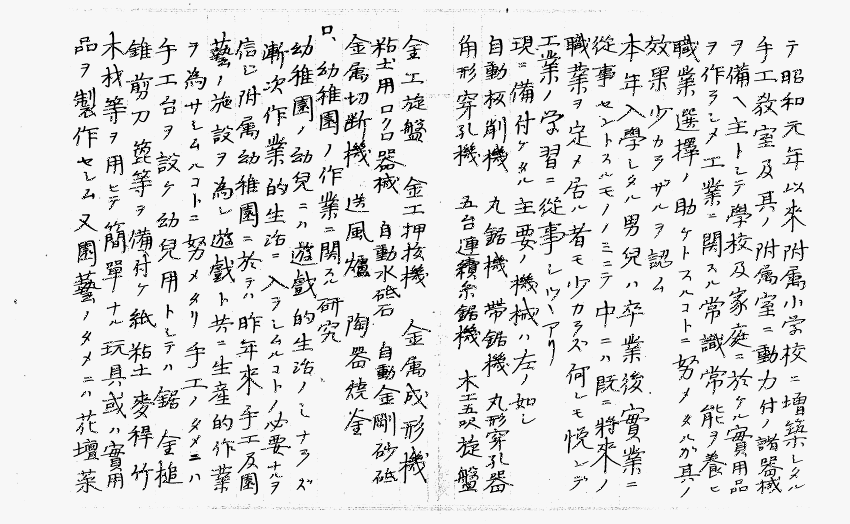 テ昭和元年以來附属小学校ニ増築シタル
手工教室及其ノ附属室ニ動力付ノ諸器械
ヲ備ヘ主トシテ學校及家庭ニ於ケル實用品
ヲ作ラシメ工業ニ関スル常識常能ヲ養ヒ
職業選擇ノ助ケトスルコトニ努メタルガ其ノ
效果少カラザルヲ認ム
本年入學シタル男兒ハ卒業後實業ニ
從事セントスルモノノミニテ中ニハ既ニ將來ノ
職業ヲ定メ居ル者モ少カラズ何レモ悦ンデ
工業ノ学習ニ從事シツヽアリ
現ニ備付ケタル主要ノ機械ハ左ノ如シ
自動板削機 丸鋸機 帶鋸機 丸形穿孔器
角形穿孔機 五台連續糸鋸機 木工五呎旋盤
金工旋盤 金工押抜機 金属成形機
粘土用ロクロ器械 自動水砥石 自動金剛砂砥
金属切断機 送風爐 陶器焼釜
ロ、幼稚園ノ作業ニ関スル研究
幼稚園ノ幼兒ニハ遊戯的生活ノミナラズ
漸次作業的生活ニ入ラシムルコトノ必要ナルヲ
信ジ附属幼稚園ニ於テハ昨年來手工及園
藝ノ施設ヲ為シ遊戯ト共ニ生産的作業
ヲ為サシムルコトニ努メタリ手工ノタメニハ
手工台ヲ設ケ幼兒用トシテハ鋸 金槌
錐剪刀箆等ヲ備付ケ紙粘土麥稈竹
木材等ヲ用ヒテ簡單ナル玩具或ハ實用
品ヲ製作セシム又園藝ノタメニハ花壇菜